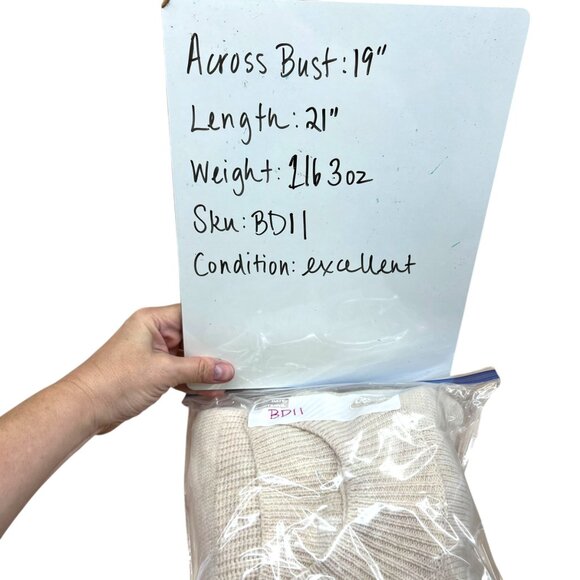 Across Bust: 19"
Length: 21"
Weight: 1lb 3oz
Sku: BD11
Condition: excellent
BD11